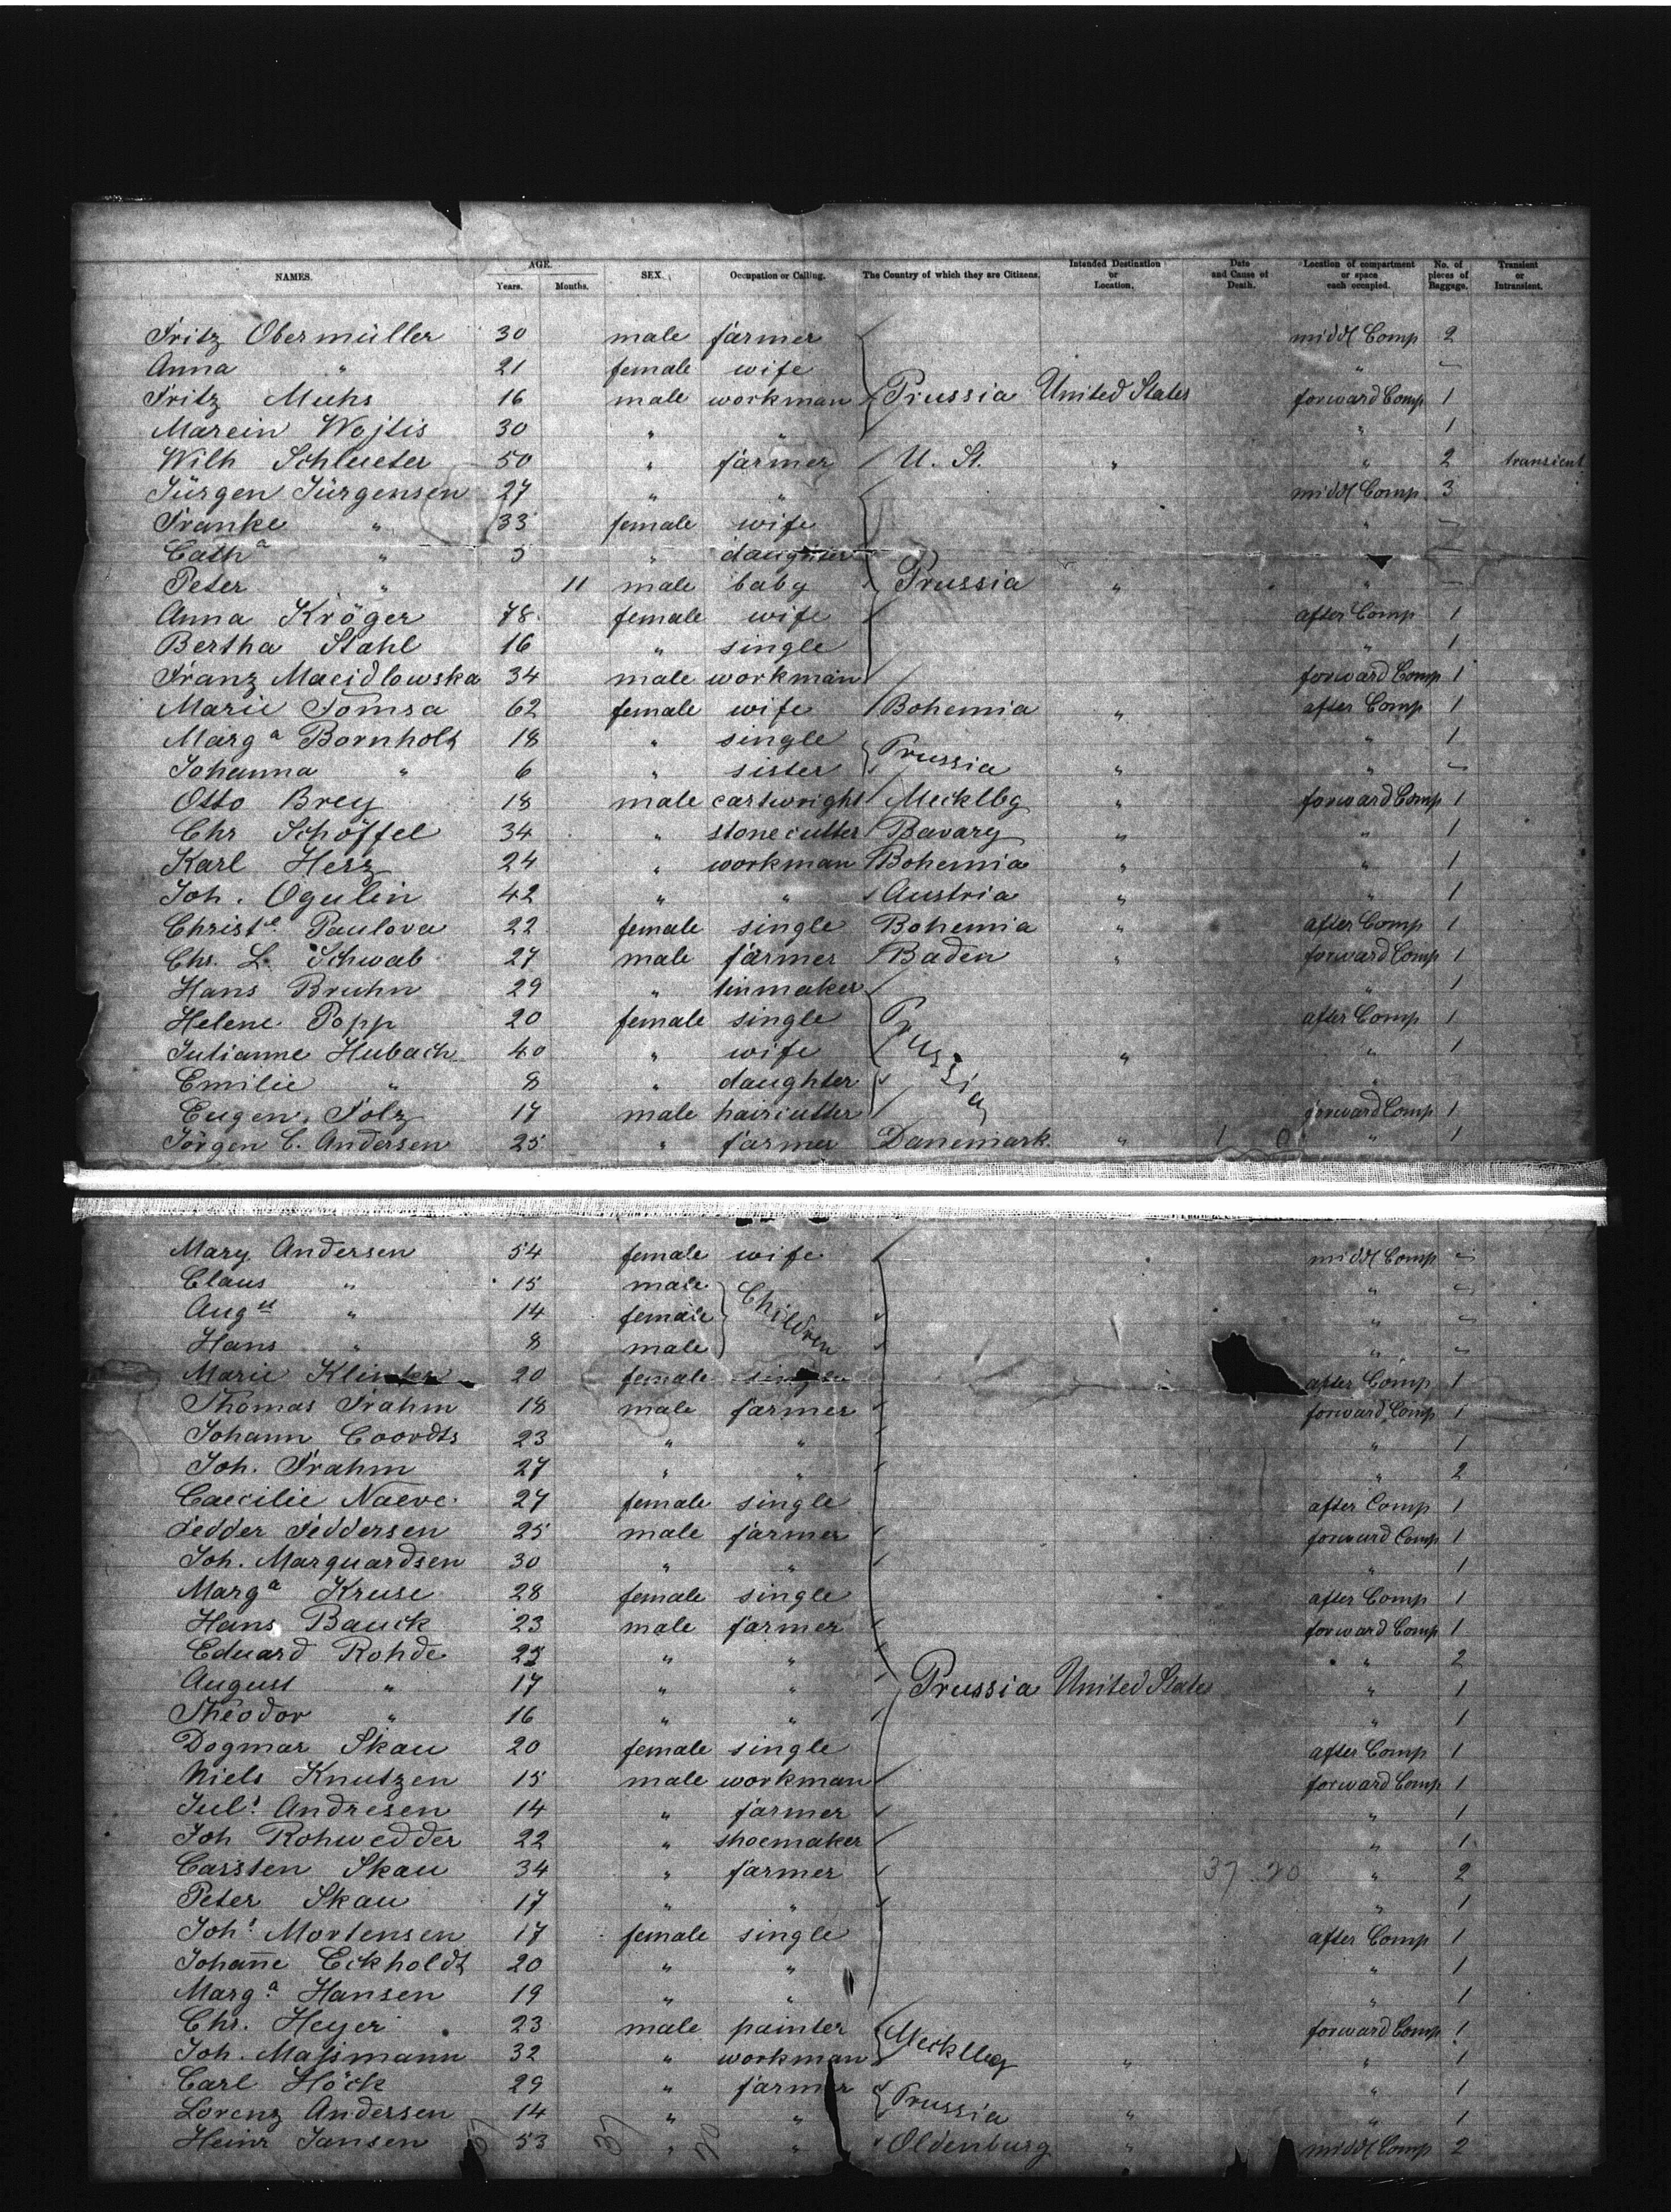 NAMES. AGE. Years. Months. SEX. Occupation or Calling. The Country of which they are Citizens. Intended Destination or Location. Date and Cause of Death. Location of compartment or space each occupied. No. of pieces of Baggage. Transient or Intransient.
Fritz Obermüller 30 male farmer middl Comp 2
Anna " 21 female wife "
Fritz Muhs 16 male workman Prussia United States forward Comp 1
Marcin Wojtis 30 " " " 1
Wilh Schlueter 50 " farmer U. St. " " 2 transient
Jürgen Jürgensen 27 " " middl Comp 3
Franke " 33 female wife "
Cath a " 5 " daughter
Peter " 11 male baby Prussia " "
Anna Kröger 78 female wife after Comp 1
Bertha Stahl 16 " single " 1
Franz Macidlowska 34 male workman forward Comp 1
Marie Tomsa 62 female wife Bohemia " after Comp 1
Marg a Bornholt 18 " single Prussia " 1
Johanna " 6 " sister " "
Otto Brey 18 male cartwright Mecklbg " forward Comp 1
Chr Schöffel 34 " stonecutter Bavary " " 1
Karl Herz 24 " workman Bohemia " " 1
Joh. Ogulin 42 " " Austria " " 1
Christe Paulova 22 female single Bohemia " after Comp 1
Chr. L. Schwab 27 male farmer Baden " forward Comp 1
Hans Bruhn 29 " tinmaker " 1
Helene Popp 20 female single Prussia after Comp 1
Julianne Hubach 40 " wife " " 1
Emilie " 8 " daughter "
Eugen Folz 17 male haircutter forward Comp 1
Jörgen C. Andersen 25 " farmer Danemark " " 1
Mary Andersen 54 female wife middl Comp
Claus " 15 male Children "
Aug st " 14 female "
Hans " 8 male "
Marie Klinker 20 female single after Comp 1
Thomas Frahm 18 male farmer forward Comp 1
Johann Coordts 23 " " " 1
Joh. Frahm 27 " " " 2
Caecilie Naeve 27 female single after Comp 1
Fedder Feddersen 25 male farmer forward Comp 1
Joh. Marquardsen 30 " " " 1
Marg a Kruse 28 female single after Comp 1
Hans Bauck 23 male farmer forward Comp 1
Eduard Rohde 25 " " " 2
August " 17 " " Prussia United States " 1
Theodor " 16 " " " 1
Dogmar Skau 20 female single after Comp 1
Niels Knutzen 15 male workman forward Comp 1
Jul s Andresen 14 " farmer " 1
Joh Rohwedder 22 " shoemaker " 1
Carsten Skau 34 " farmer 37 20 " 2
Peter Skau 17 " " " 1
Joh s Mortensen 17 female single after Comp 1
Johan̄e Eckholdt 20 " " " 1
Marg a Hansen 19 " " " 1
Chr. Heyer 23 male painter Mecklbg forward Comp 1
Joh. Maßmann 32 " workman " " 1
Carl Höck 29 " farmer Prussia " 1
Lorenz Andersen 14 " " " " 1
Heinr Jansen 53 " " Oldenburg " middl Comp 2